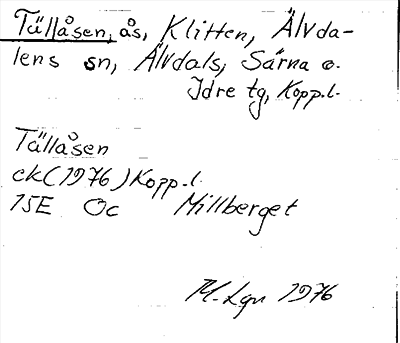 Tällåsen, ås, Klitten, Älvda-
lens sn, Älvdals, Särna o.
Idre tg, Kopp.l.
Tällåsen
ek (1976) Kopp.l.
15E Oc Millberget
M. Lgn 1976